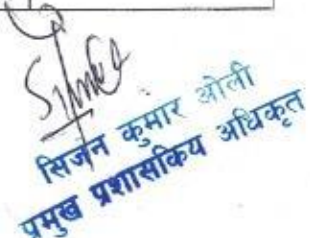 सिर्जन कुमार ओली
प्रमुख प्रशासकिय अधिकृत